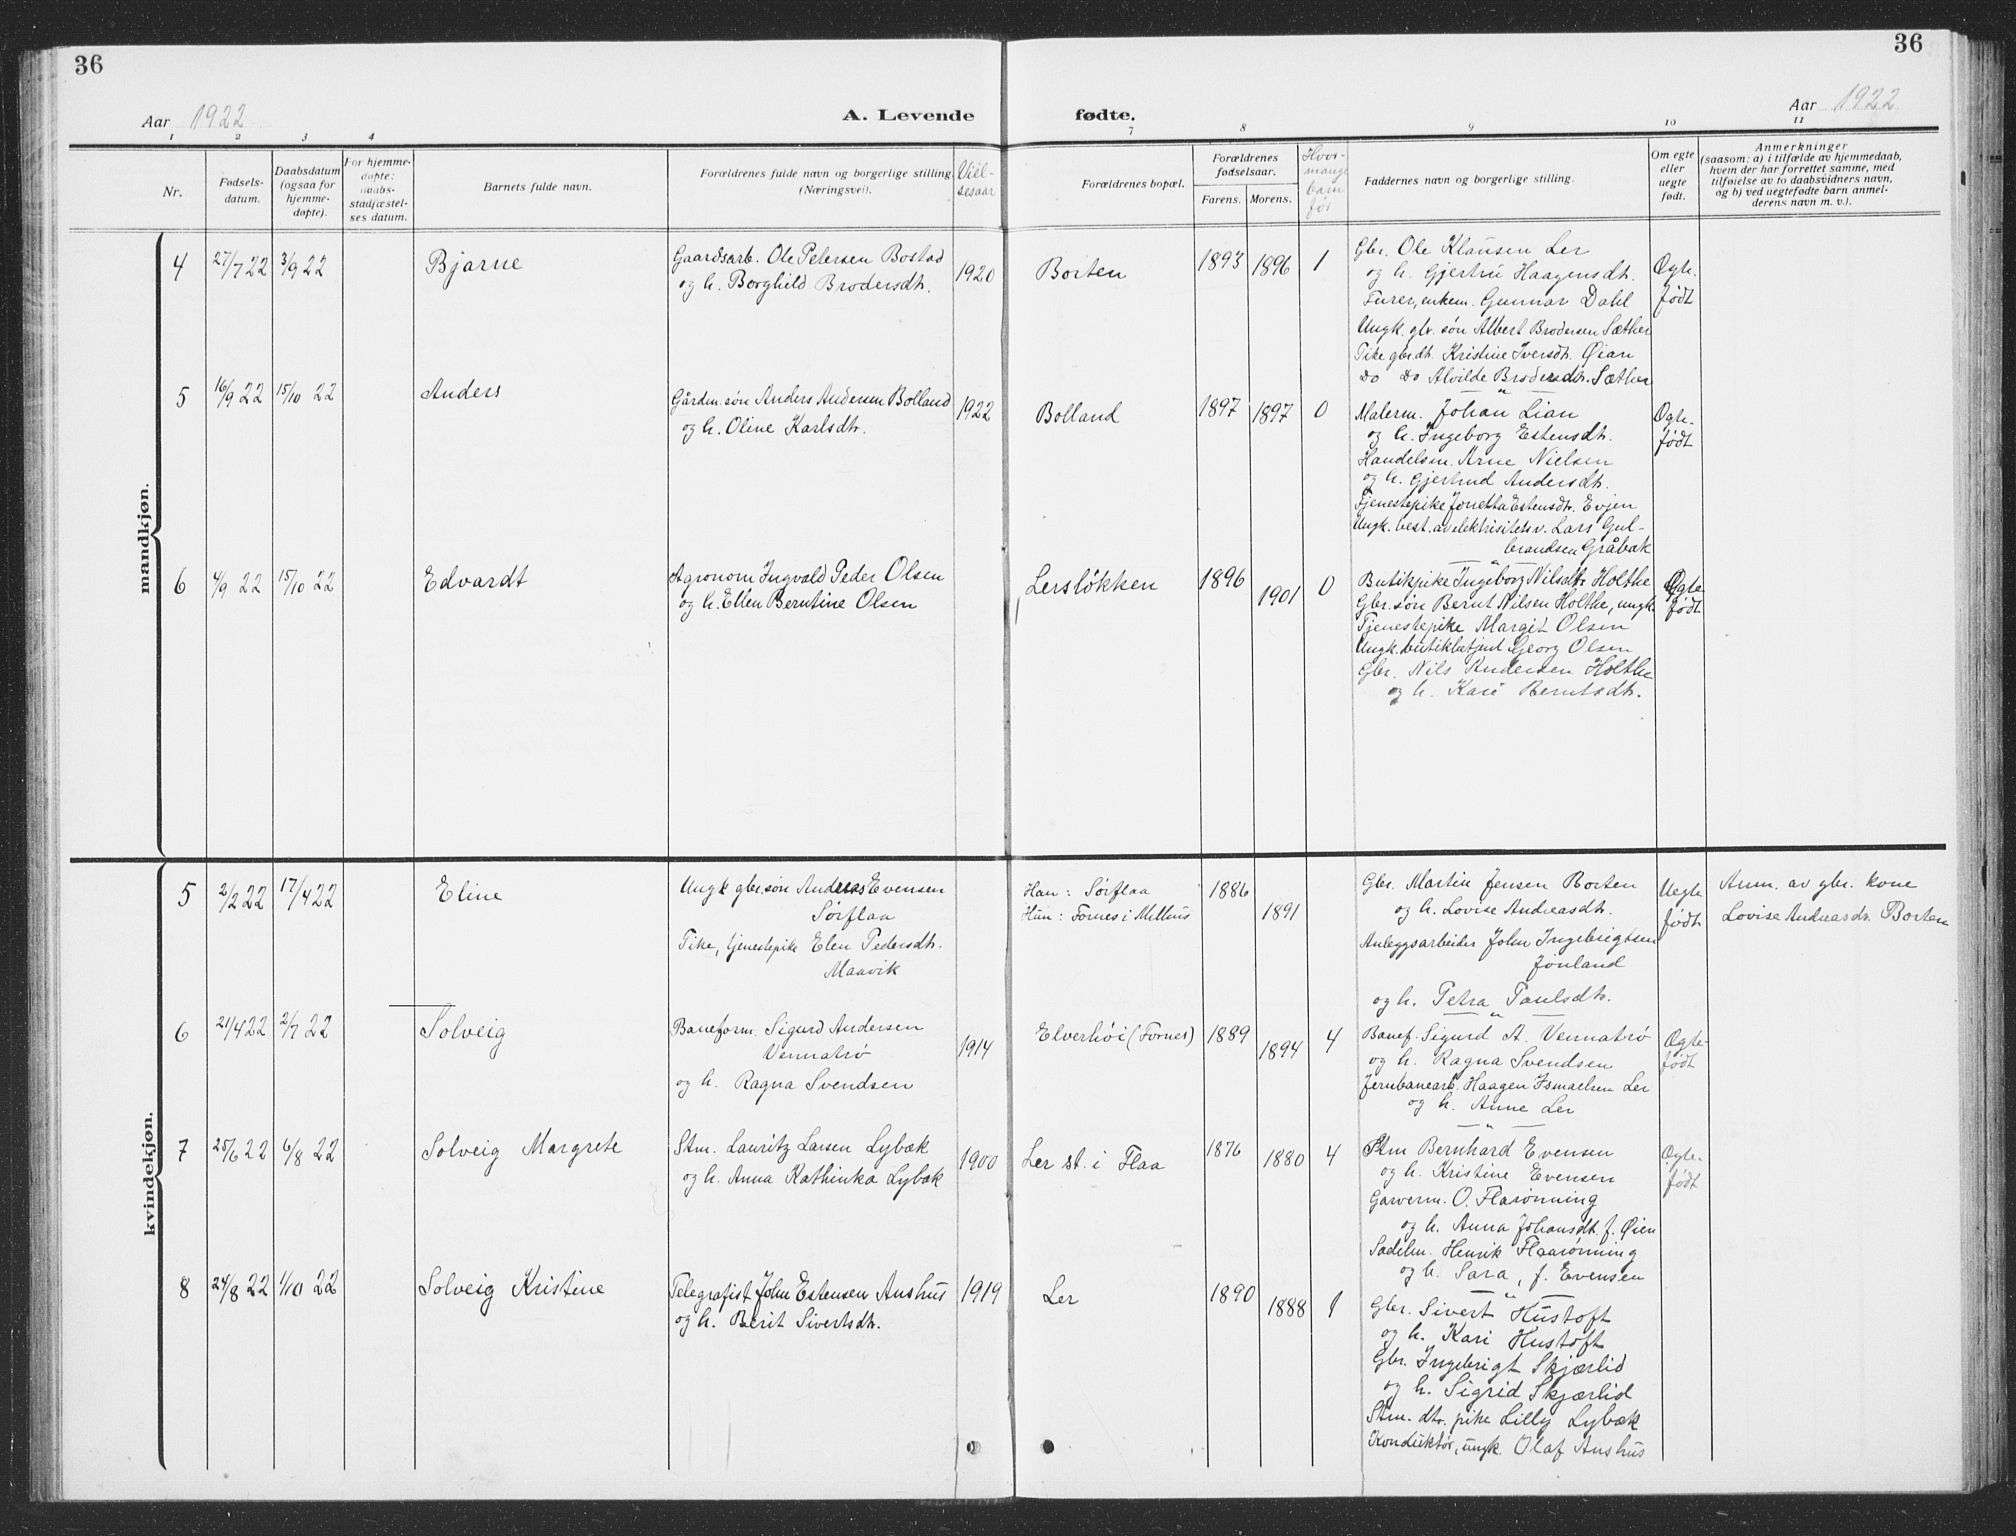 36
36
Aar 1922
A. Levende fødte.
Aar 1922
1 2 3 4 7 8 9 10 11
Nr.
Fødsels-
datum.
Daabsdatum
(ogsaa for
hjemme-
døpte).
For hjemme-
døpte:
daabs-
stadfæstel-
ses datum.
Barnets fulde navn.
Forældrenes fulde navn og borgerlige stilling.
(Næringsvei).
Viel-
sesaar
Forældrenes bopæl.
Forældrenes
fødselsaar.
Farens. Morens.
Hvor-
mange
barn
før
Faddernes navn og borgerlige stilling.
Om egte
eller
uegte
født.
Anmerkninger
(saasom: a) i tilfælde av hjemmedaab,
hvem der har forrettet samme, med
tilføielse av to daabsvidners navn,
og b) ved uegtefødte barn anmel-
derens navn m. v.).
mandkjøn.
4 27/7 22 3/9 22 Bjarne
Gaardsarb. Ole Petersen Bostad
og h. Borghild Brodersdtr.
1920 Borten 1893 1896 1
Gbr. Ole Klausen Ler
og h. Gjertru Haagensdtr.
Furer, enkem. Gunnar Dahl
Ungk. gbr. søn Albert Brodersen Sæther
Pike gbr.dtr. Kristine Iversdtr. Øian
Do Do Alvilde Brodersdtr. Sæther
Ægte-
født
5 16/9 22 15/10 22 Anders
Gårdm. søn Anders Andersen Bolland
og h. Oline Karlsdtr.
1922 Bolland 1897 1897 0
Malerm. Johan Lian
og h. Ingeborg Estensdtr.
Handelsm. Arne Nielsen
og h. Gjertrud Andersdtr.
Tjenestepike Jonetta Estensdtr. Evjen
Ungk. best. av elektrisitetsv. Lars Gul-
brandsen Gråbak
Ægte-
født
6 4/9 22 15/10 22 Edvardt
Agronom Ingvald Peder Olsen
og h. Ellen Berntine Olsen
Lersløkken 1896 1901 0
Butikpike Ingeborg Nilsdtr Holthe
Gbr. søn Bernt Nilsen Holthe, ungk.
Tjenestepike Margit Olsen
Ungk. butikbetjent Georg Olsen
Gbr. Nils Andersen Holthe
og h. Kari Berntsdtr.
Ægte
født
kvindekjøn.
5 2/2 22 17/4 22 Eline
Ungk gbr. søn Andreas Evensen
Sørflaa
Pike, tjenestepike Elen Pedersdtr.
Maavik
Han: Sørflaa
Hun: Fornes i Melhus
1886 1891
Gbr. Martin Jensen Borten
og h. Lovise Andreasdtr.
Anleggsarbeider John Ingebrigtsen
Jønland
og h. Petra Paulsdtr.
Uegte
født
Anm. av gbr. kone
Lovise Andreasdtr. Borten
6 21/4 22 2/7 22 Solveig
Baneform. Sigurd Andersen
Vennatrø
og h. Ragna Svendsen
1914 Elverhöi (Fornes) 1889 1894 4
Banef. Sigurd A. Vennatrø
og h. Ragna Svendsen
Jernbanearb. Haagen Ismaelsen Ler
og h. Anne Ler
Ægte-
født
7 25/6 22 6/8 22 Solveig Margrete
Stm. Lauritz Larsen Lybæk
og h. Anna Kathinka Lybæk
1900 Ler st. i Flaa 1876 1880 4
Stm Bernhard Evensen
og h. Kristine Evensen
Garverm. O. Flarønning
og h. Anna Johansdtr. f. Øien
Sadelm. Henrik Flaarønning
og h. Sara, f. Evensen
Ægte-
født
8 24/8 22 1/10 22 Solveig Kristine
Telegrafist John Estensen Aushus
og h. Berit Sivertsdtr.
1919 Ler 1890 1888 1
Gbr. Sivert Hustoft
og h. Kari Hustoft
Gbr. Ingebrigt Skjærlid
og h. Sigrid Skjærlid
Stm. dtr. pike Lilly Lybæk
Konduktør, ungk. Olaf Aushus